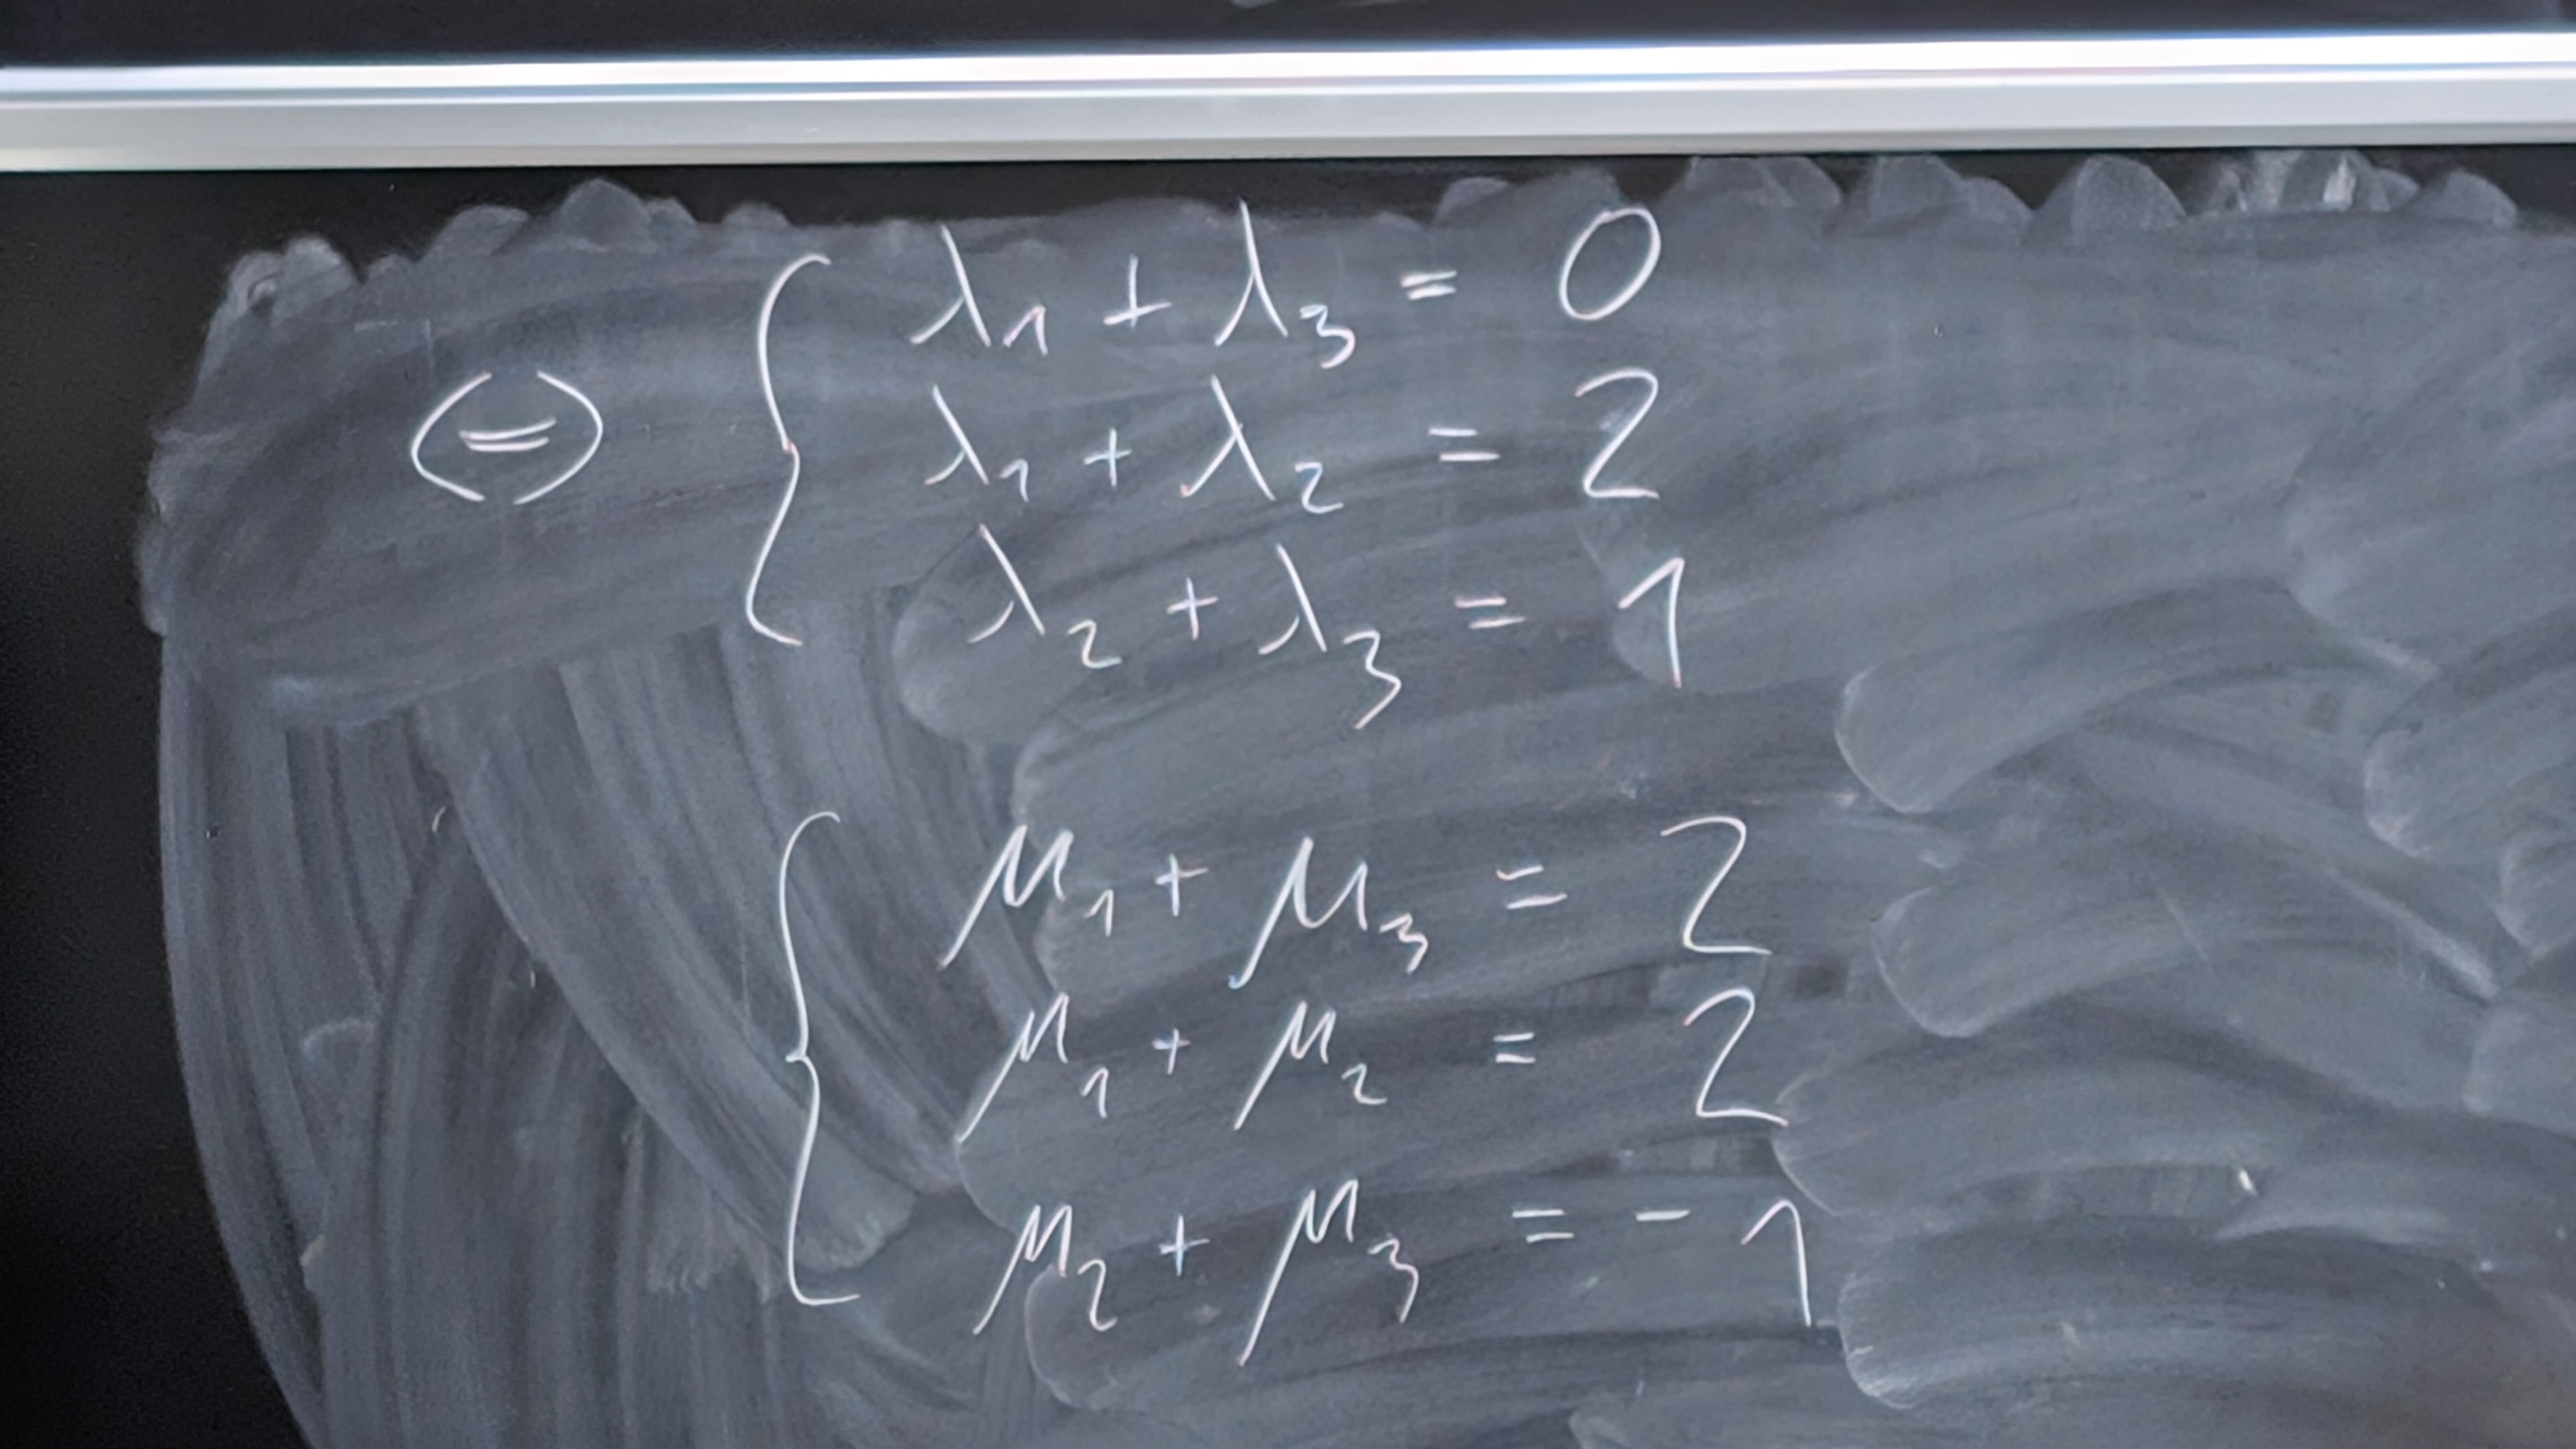 (=) { λ₁ + λ₃ = 0
λ₁ + λ₂ = 2
λ₂ + λ₃ = 1
{ μ₁ + μ₃ = 2
μ₁ + μ₂ = 2
μ₂ + μ₃ = -1